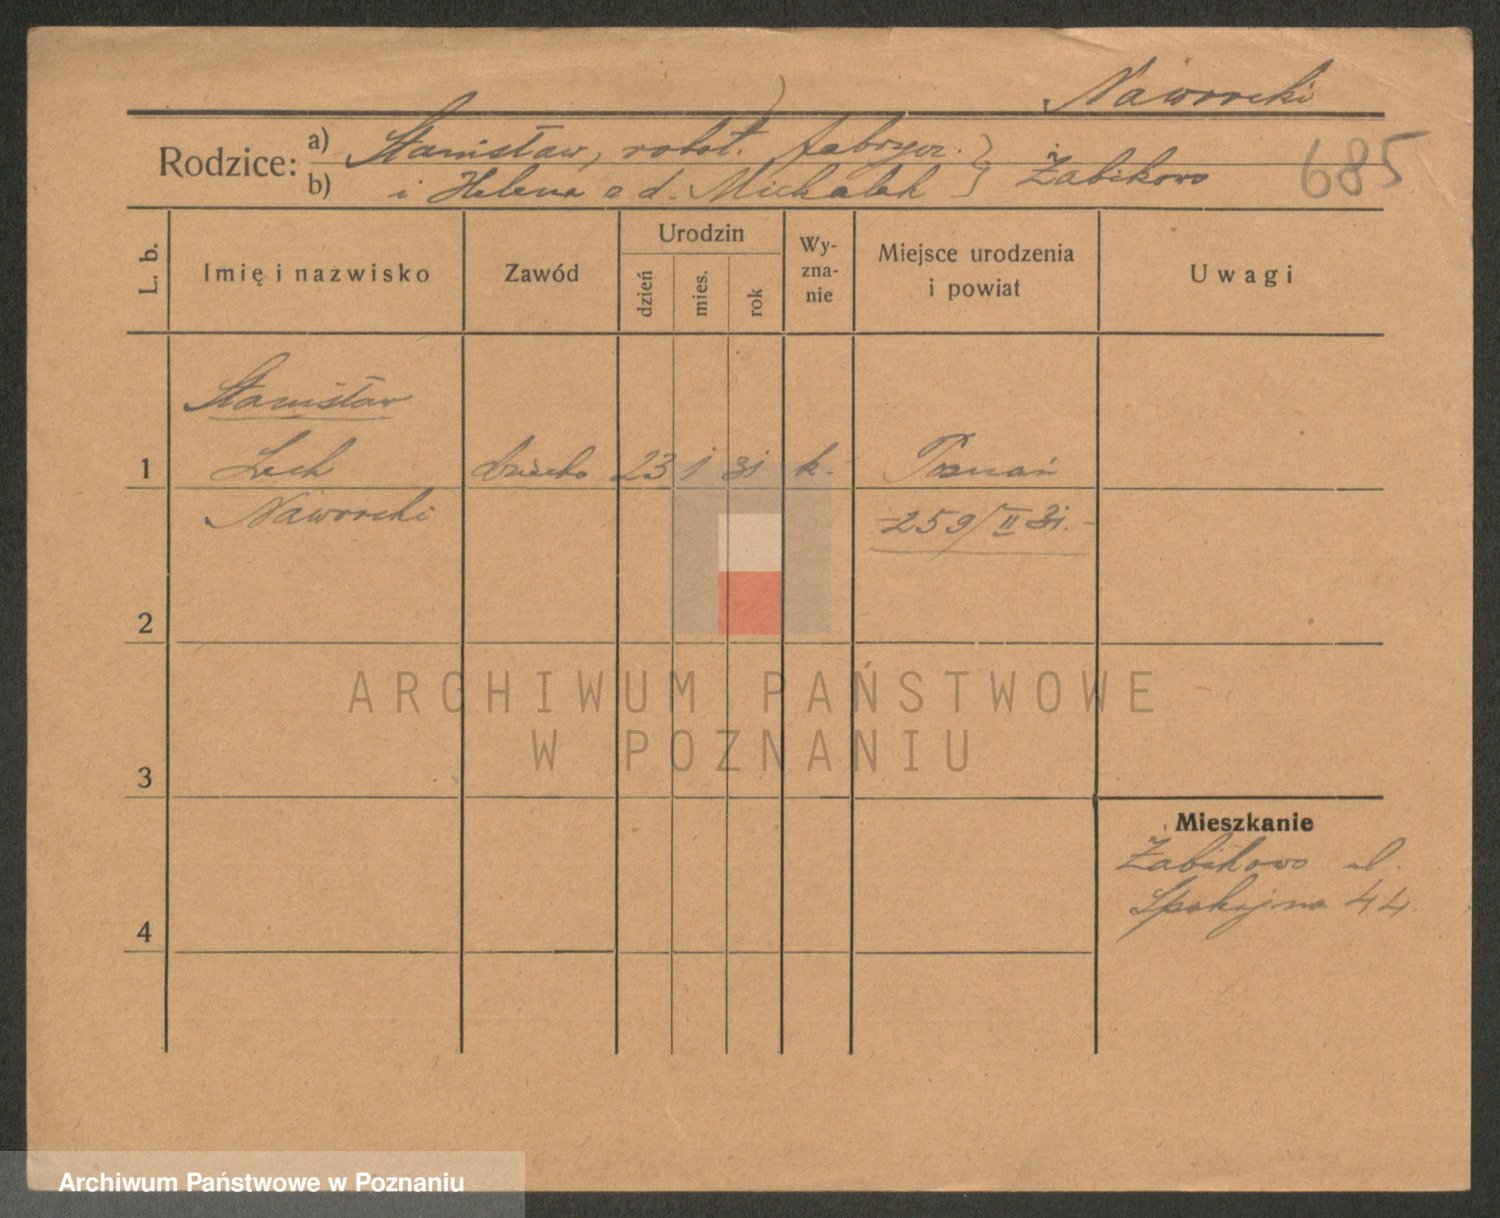 Naworcki
Rodzice: a) Stanisław, robot. fabrycz. } Żabikowo 685
b) i Helena z d. Michalak
L. b. Imię i nazwisko Zawód Urodzin dzień mies. rok Wy-zna-nie Miejsce urodzenia i powiat Uwagi
Stanisław
1 Lech dziecko 23 1 31 k. Poznań
Naworcki -259/II 31.-
2
3
Mieszkanie
Żabikowo ul.
Spokojna 44.
4
ARCHIWUM PAŃSTWOWE
W POZNANIU
Archiwum Państwowe w Poznaniu